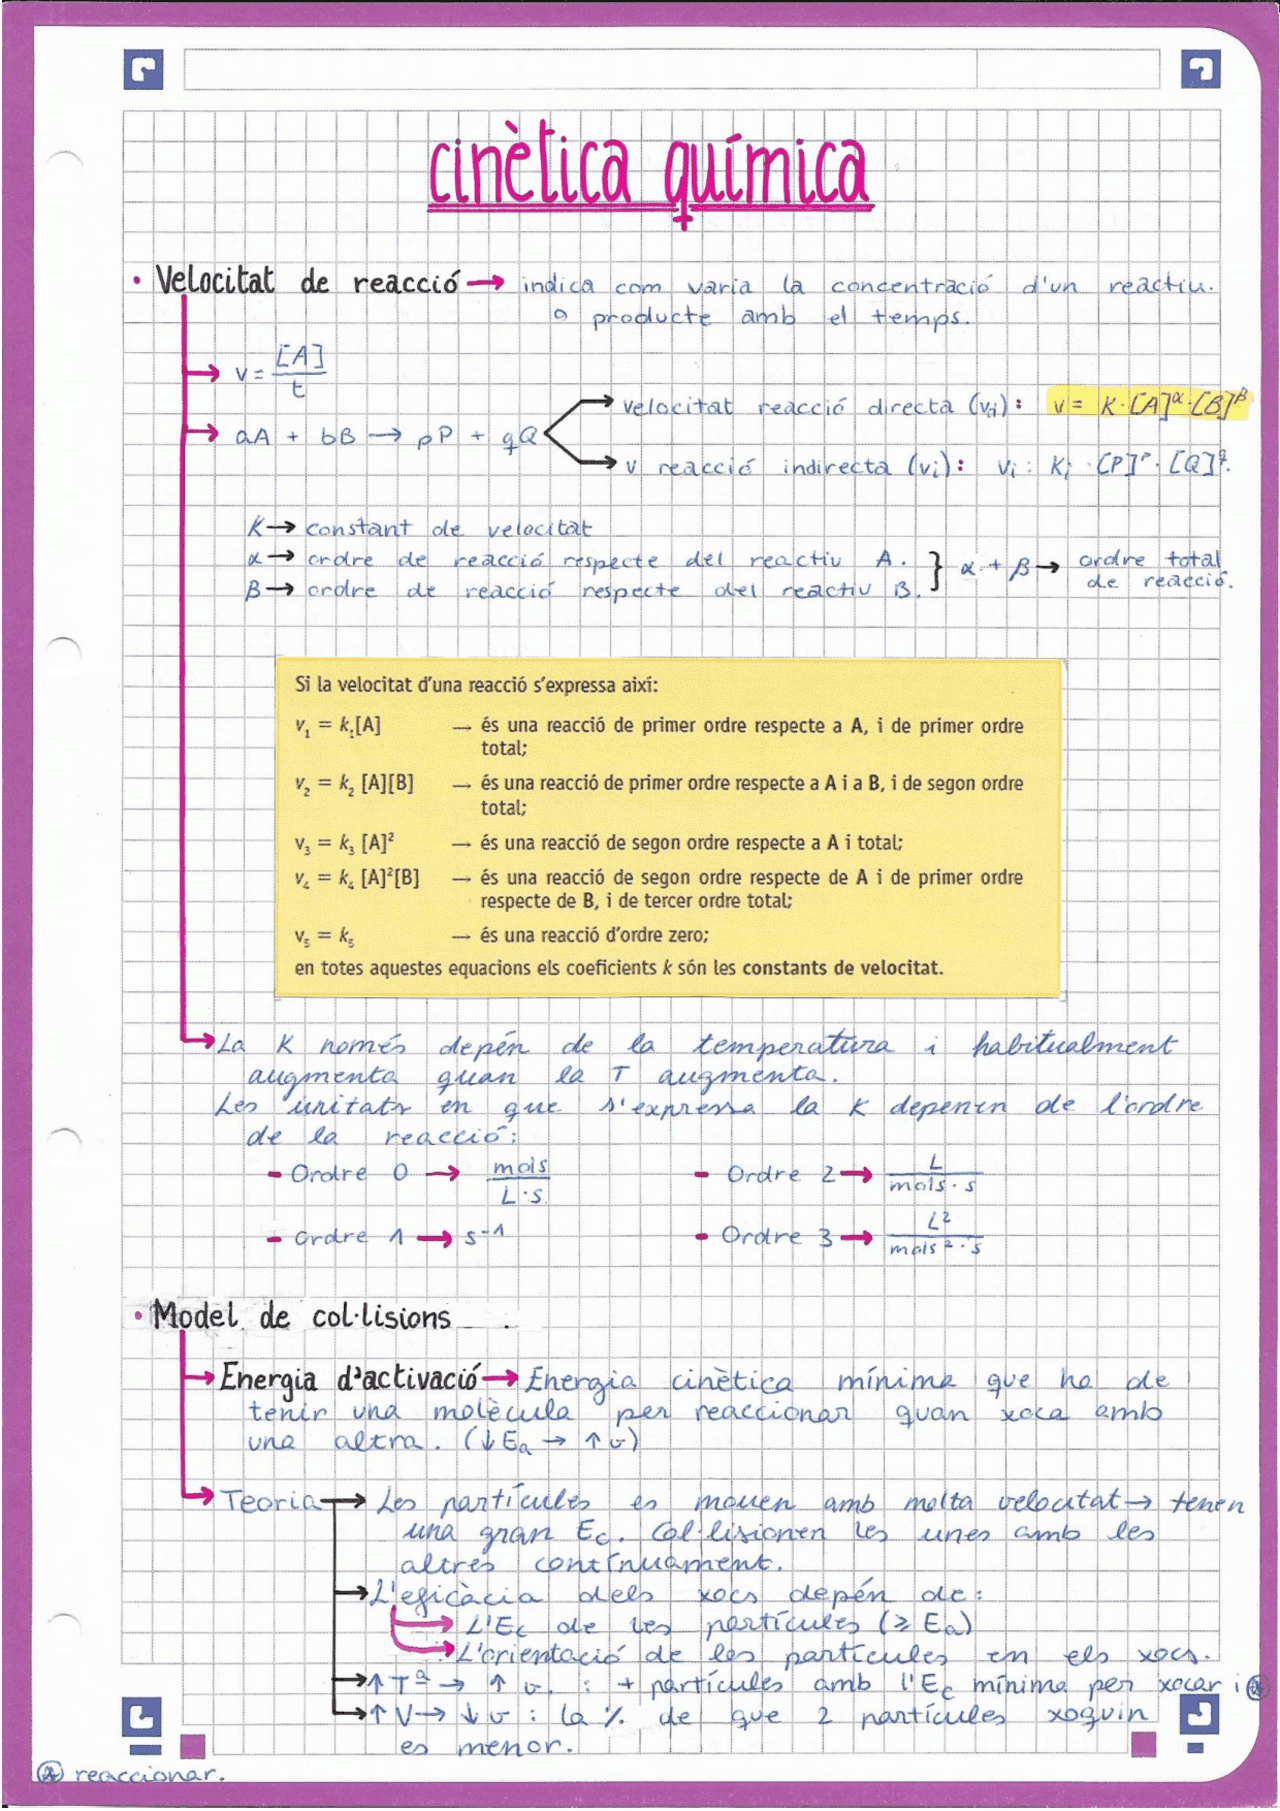 cinètica química
· Velocitat de reacció → indica com varia la concentració d'un reactiu.
o producte amb el temps.
→ v = [A]/t
→ aA + bB → pP + qQ
→ velocitat reacció directa (vd): v = K·[A]^α·[B]^β
→ v reacció indirecta (vi): vi: Ki·[P]^p·[Q]^q.
K → constant de velocitat
α → ordre de reacció respecte del reactiu A.
β → ordre de reacció respecte del reactiu B.
} α + β → ordre total
de reacció.
Si la velocitat d'una reacció s'expressa així:
v₁ = k₁[A] → és una reacció de primer ordre respecte a A, i de primer ordre
total;
v₂ = k₂ [A][B] → és una reacció de primer ordre respecte a A i a B, i de segon ordre
total;
v₃ = k₃ [A]² → és una reacció de segon ordre respecte a A i total;
v₄ = k₄ [A]²[B] → és una reacció de segon ordre respecte de A i de primer ordre
respecte de B, i de tercer ordre total;
v₅ = k₅ → és una reacció d'ordre zero;
en totes aquestes equacions els coeficients k són les constants de velocitat.
→ La K només depén de la temperatura i habitualment
augmenta quan la T augmenta.
Les unitats en que s'expressa la K depenen de l'ordre
de la reacció:
- Ordre 0 → mols/L·s
- Ordre 2 → L/mols·s
- Ordre 1 → s⁻¹
- Ordre 3 → L²/mols²·s
· Model de col·lisions
→ Energia d'activació → Energia cinètica mínima que ha de
tenir una molècula per reaccionar quan xoca amb
una altra. (↓Ea → ↑v)
→ Teoria → Les partícules es mouen amb molta velocitat → tenen
una gran Ec. Col·lisionen les unes amb les
altres contínuament.
→ L'eficàcia dels xocs depén de:
→ L'Ec de les partícules (≥ Ea)
→ L'orientació de les partícules en els xocs.
→ ↑Tª → ↑v. : + partícules amb l'Ec mínima per xocar i *
→ ↑V → ↓v : la % de que 2 partícules xoquin
es menor.
* reaccionar.